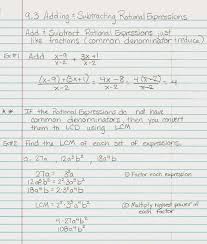 9.3 Adding & Subtracting Rational Expressions
Add & Subtract Rational Expressions just
like fractions (common denominator & reduce)
Ex#1 Add x-9/x-2 + 3x+1/x-2
(x-9)+(3x+1)/x-2 = 4x-8/x-2 = 4(x-2)/x-2 = 4
If the Rational Expressions do not have
common denominators, then you convert
them to LCD using LCM
Ex#2 Find the LCM of each set of expressions.
a. 27a 12a³b² 18a⁴b
27a = 3³a ① Factor each expression
12a³b² = 2²·3a³b²
18a⁴b = 2·3²a⁴b
LCM = 2²·3³a⁴b² ② Multiply highest power of
each factor
4·27a⁴b²
108a⁴b²